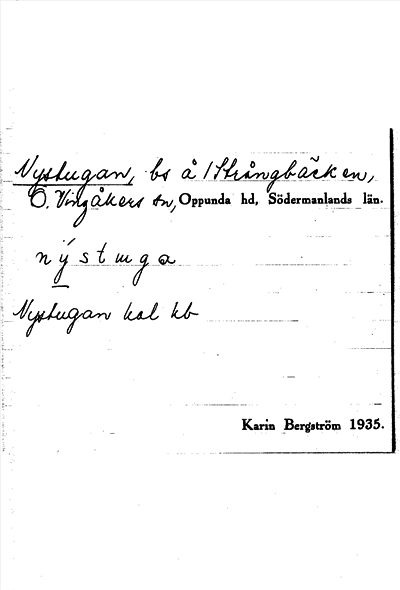 Nystugan, bs å 1 Strångbäcken,
Ö. Vingåkers sn, Oppunda hd, Södermanlands län.
nýstuga
Nystugan kal kb
Karin Bergström 1935.